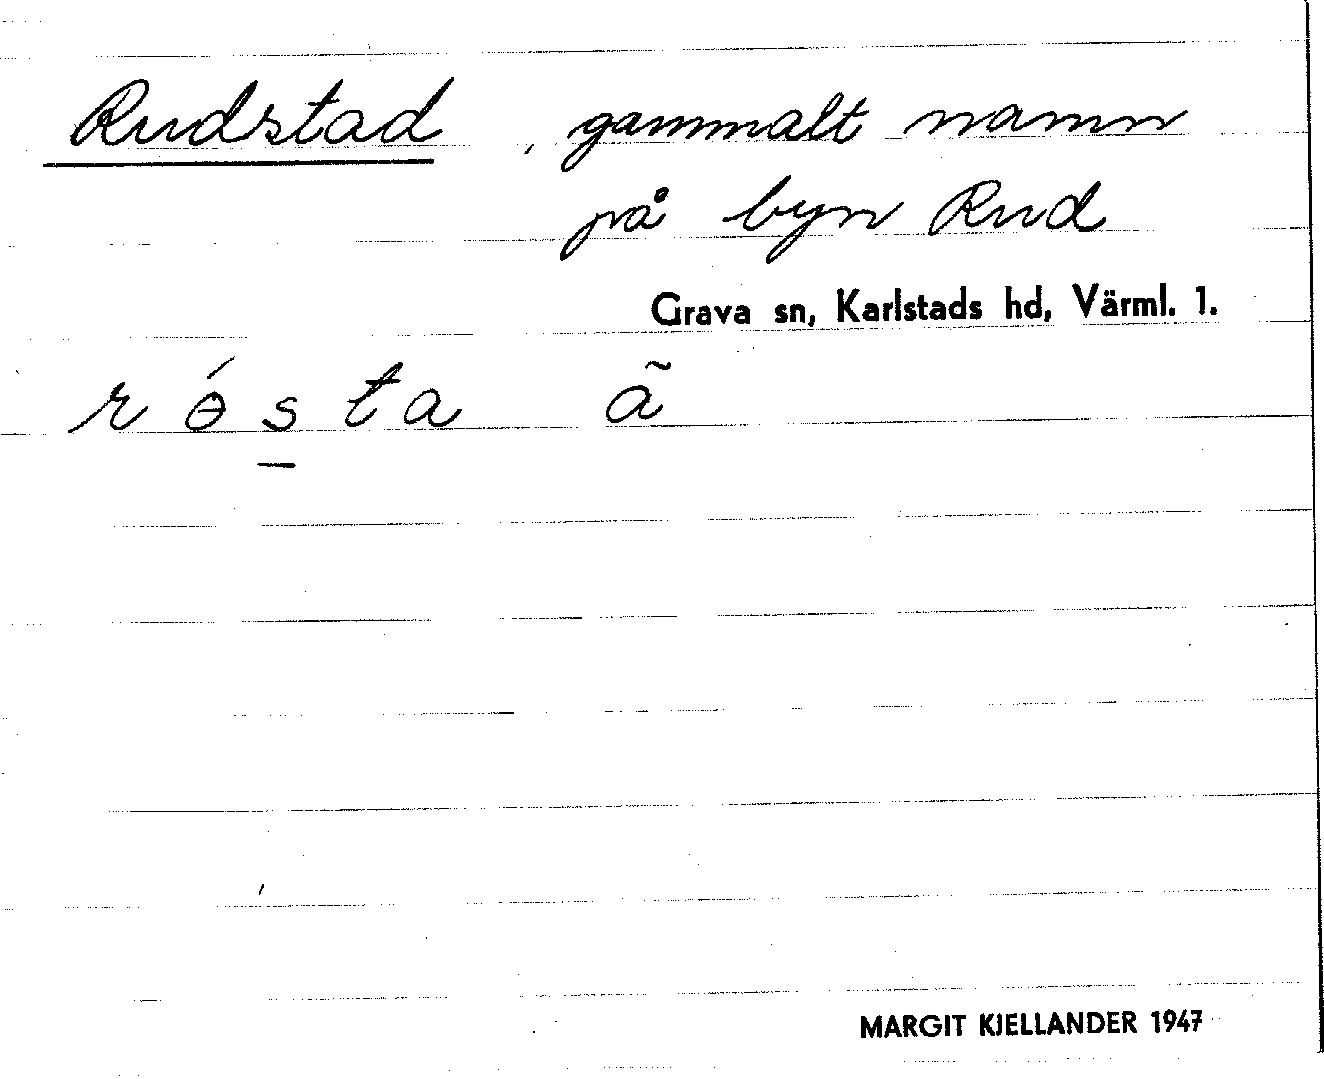 Rudstad, gammalt namn
på byn Rud
Grava sn, Karlstads hd, Värml. l.
r ǿ s̲ t a ã
MARGIT KJELLANDER 1947